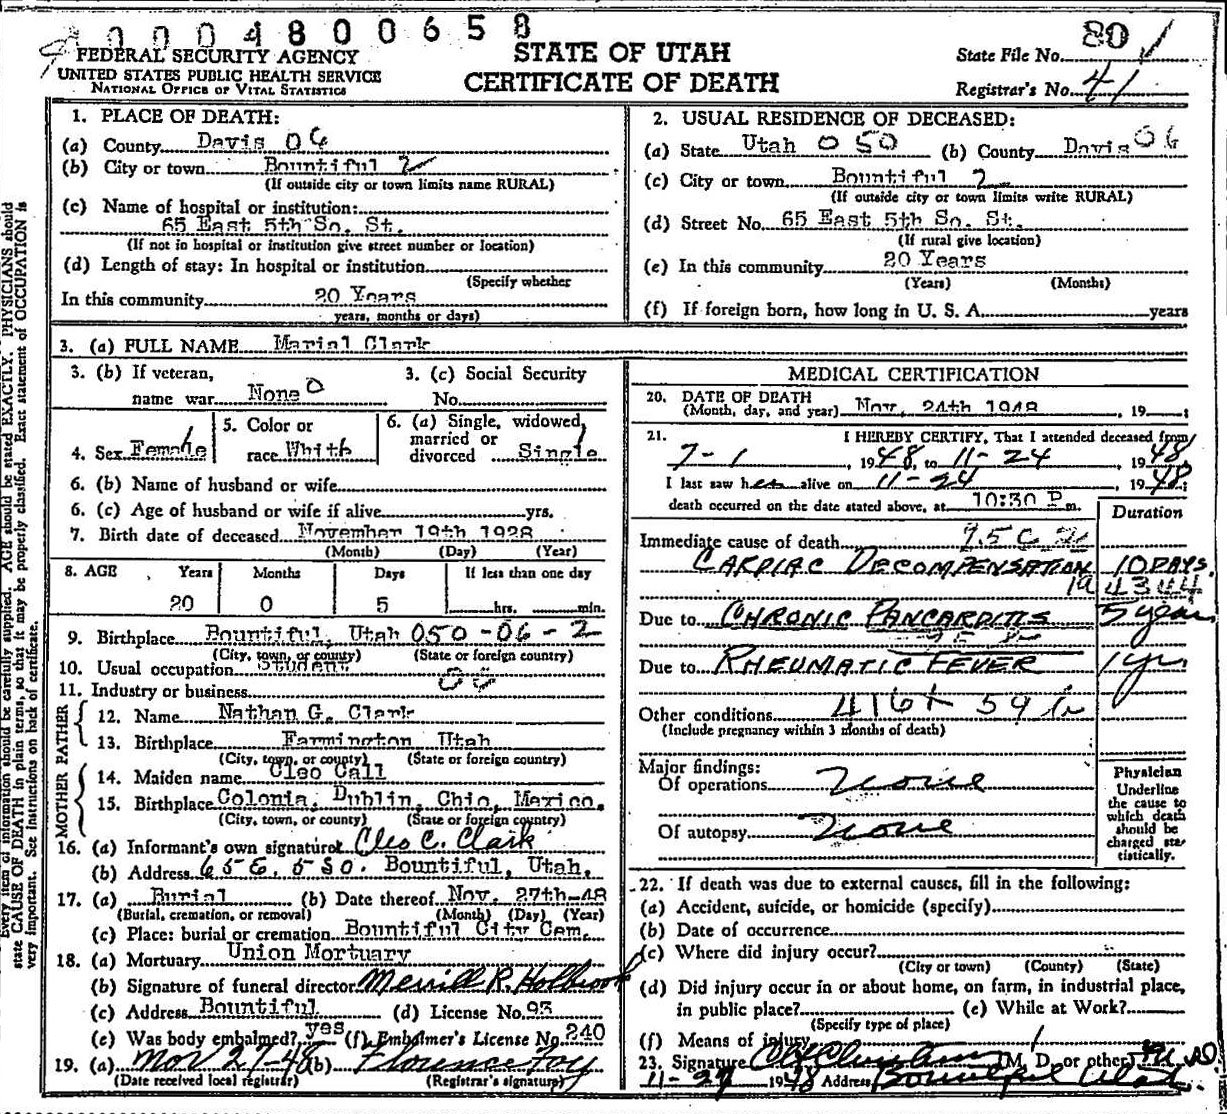 0004800658
FEDERAL SECURITY AGENCY
UNITED STATES PUBLIC HEALTH SERVICE
NATIONAL OFFICE OF VITAL STATISTICS
STATE OF UTAH
CERTIFICATE OF DEATH
State File No. 80
Registrar's No. 41
1. PLACE OF DEATH:
(a) County Davis 06
(b) City or town Bountiful 2
(If outside city or town limits name RURAL)
(c) Name of hospital or institution:
65 East 5th So. St.
(If not in hospital or institution give street number or location)
(d) Length of stay: In hospital or institution
(Specify whether
In this community 20 Years
years, months or days)
2. USUAL RESIDENCE OF DECEASED:
(a) State Utah 050 (b) County Davis 06
(c) City or town Bountiful 2
(If outside city or town limits write RURAL)
(d) Street No. 65 East 5th So. St.
(If rural give location)
(e) In this community 20 Years
(Years) (Months)
(f) If foreign born, how long in U. S. A. years
3. (a) FULL NAME Marial Clark
3. (b) If veteran,
name war None 0
3. (c) Social Security
No.
4. Sex Female
5. Color or
race Whith
6. (a) Single, widowed,
married or
divorced Single
6. (b) Name of husband or wife
6. (c) Age of husband or wife if alive yrs.
7. Birth date of deceased November 19th 1928
(Month) (Day) (Year)
8. AGE Years Months Days If less than one day
20 0 5 hrs. min.
9. Birthplace Bountiful, Utah 050-06-2
(City, town, or county) (State or foreign country)
10. Usual occupation Student
11. Industry or business
FATHER
12. Name Nathan G. Clark
13. Birthplace Farmington Utah
(City, town, or county) (State or foreign country)
MOTHER
14. Maiden name Cleo Call
15. Birthplace Colonia, Dublin, Chio, Mexico.
(City, town, or county) (State or foreign country)
16. (a) Informant's own signature Cleo C. Clark
(b) Address 65 E. 5 SO. Bountiful, Utah.
17. (a) Burial (b) Date thereof Nov. 27th-48
(Burial, cremation, or removal) (Month) (Day) (Year)
(c) Place: burial or cremation Bountiful City Cem.
18. (a) Mortuary Union Mortuary
(b) Signature of funeral director Merrill R. Holbrook
(c) Address Bountiful (d) License No. 93
(e) Was body embalmed? yes (f) Embalmer's License No. 240
19. (a) Nov 27-48 (b) Florence Foy
(Date received local registrar) (Registrar's signature)
MEDICAL CERTIFICATION
20. DATE OF DEATH
(Month, day, and year) Nov. 24th 1948, 19 ;
21. I HEREBY CERTIFY, That I attended deceased from
7-1, 1948, to 11-24, 1948,
I last saw her alive on 11-24, 1948;
death occurred on the date stated above, at 10:30 P. m.
Duration
Immediate cause of death
CARDIAC DECOMPENSATION 10 DAYS.
Due to CHRONIC PANCARDITIS 5 years
Due to RHEUMATIC FEVER 1 yr
Other conditions
(Include pregnancy within 3 months of death)
Major findings:
Of operations None
Of autopsy None
Physician
Underline
the cause to
which death
should be
charged sta-
tistically.
22. If death was due to external causes, fill in the following:
(a) Accident, suicide, or homicide (specify)
(b) Date of occurrence
(c) Where did injury occur?
(City or town) (County) (State)
(d) Did injury occur in or about home, on farm, in industrial place,
in public place? (e) While at Work?
(Specify type of place)
(f) Means of injury
23. Signature (M. D. or other) M.D.
11-27 1948 Address Bountiful Utah.
Every item of information should be carefully supplied. AGE should be stated EXACTLY. PHYSICIANS should
state CAUSE OF DEATH in plain terms, so that it may be properly classified. Exact statement of OCCUPATION is
very important. See instructions on back of certificate.